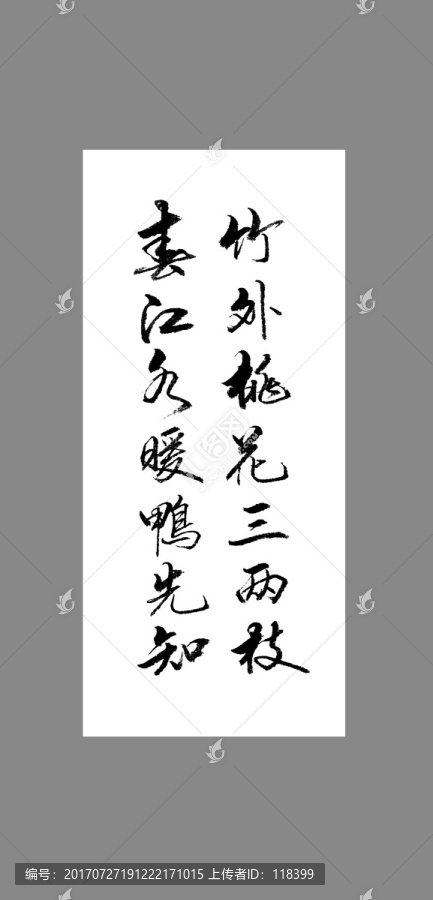 竹外桃花三两枝
春江水暖鸭先知
编号：20170727191222171015 上传者ID：118399